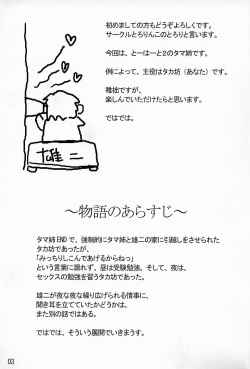 初めましての方もどうぞよろしくです。
サークルとろりんこのとろりと言います。
今回は、とーはーと2のタマ姉です。
例によって、主役はタカ坊（あなた）です。
稚拙ですが、
楽しんでいただけたらと思います。
ではでは。
雄二
～物語のあらすじ～
タマ姉ENDで、強制的にタマ姉と雄二の家に引越しをさせられた
タカ坊であったが、
「みっちりしこんであげるからねっ」
という言葉に溺れず、昼は受験勉強、そして、夜は、
セックスの勉強を習うタカ坊であった。
雄二が夜な夜な繰り広げられる情事に、
聞き耳を立てていたかどうかは、
また別の話ではある。
ではでは、そういう展開でいきまうす。
03